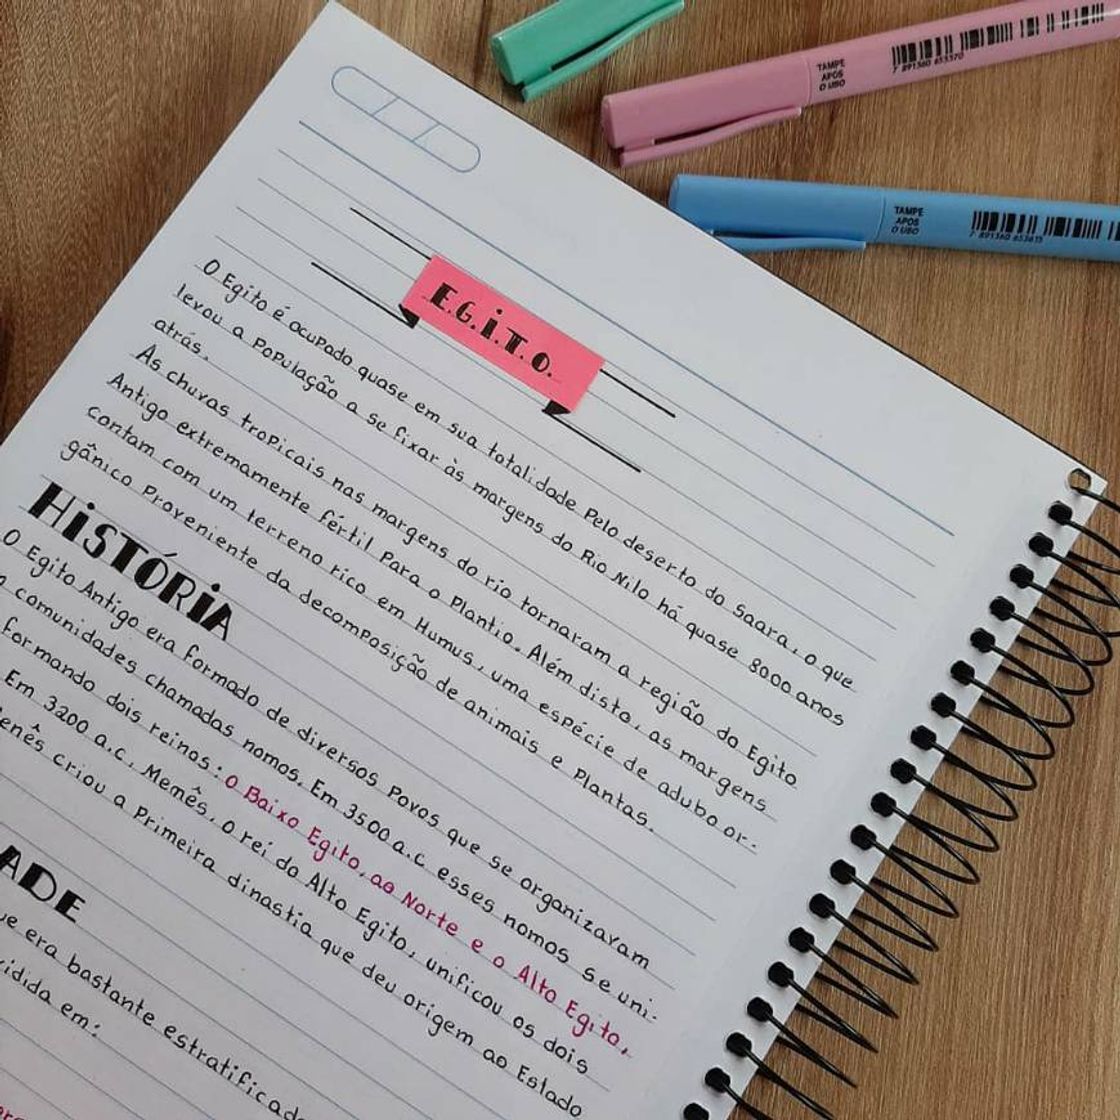 TAMPE
APÓS
O USO
7 891360 653370
TAMPE
APÓS
O USO
7 891360 653615
E.G.i.T.O.
O Egito é ocupado quase em sua totalidade pelo deserto do Saara, o que
levou a população a se fixar às margens do Rio Nilo há quase 8000 anos
atrás.
As chuvas tropicais nas margens do rio tornaram a região do Egito
Antigo extremamente fértil para o plantio. Além disto, as margens
contam com um terreno rico em Humus, uma espécie de adubo or-
gânico proveniente da decomposição de animais e plantas.
HiSTÓRiA
O Egito Antigo era formado de diversos povos que se organizavam
comunidades chamadas nomos. Em 3500 a.c esses nomos se uni-
formando dois reinos: o Baixo Egito, ao Norte e o Alto Egito,
Em 3200 a.c, Memês, o rei do Alto Egito, unificou os dois
enês criou a primeira dinastia que deu origem ao Estado
ADE
ue era bastante estratificad
idida em: